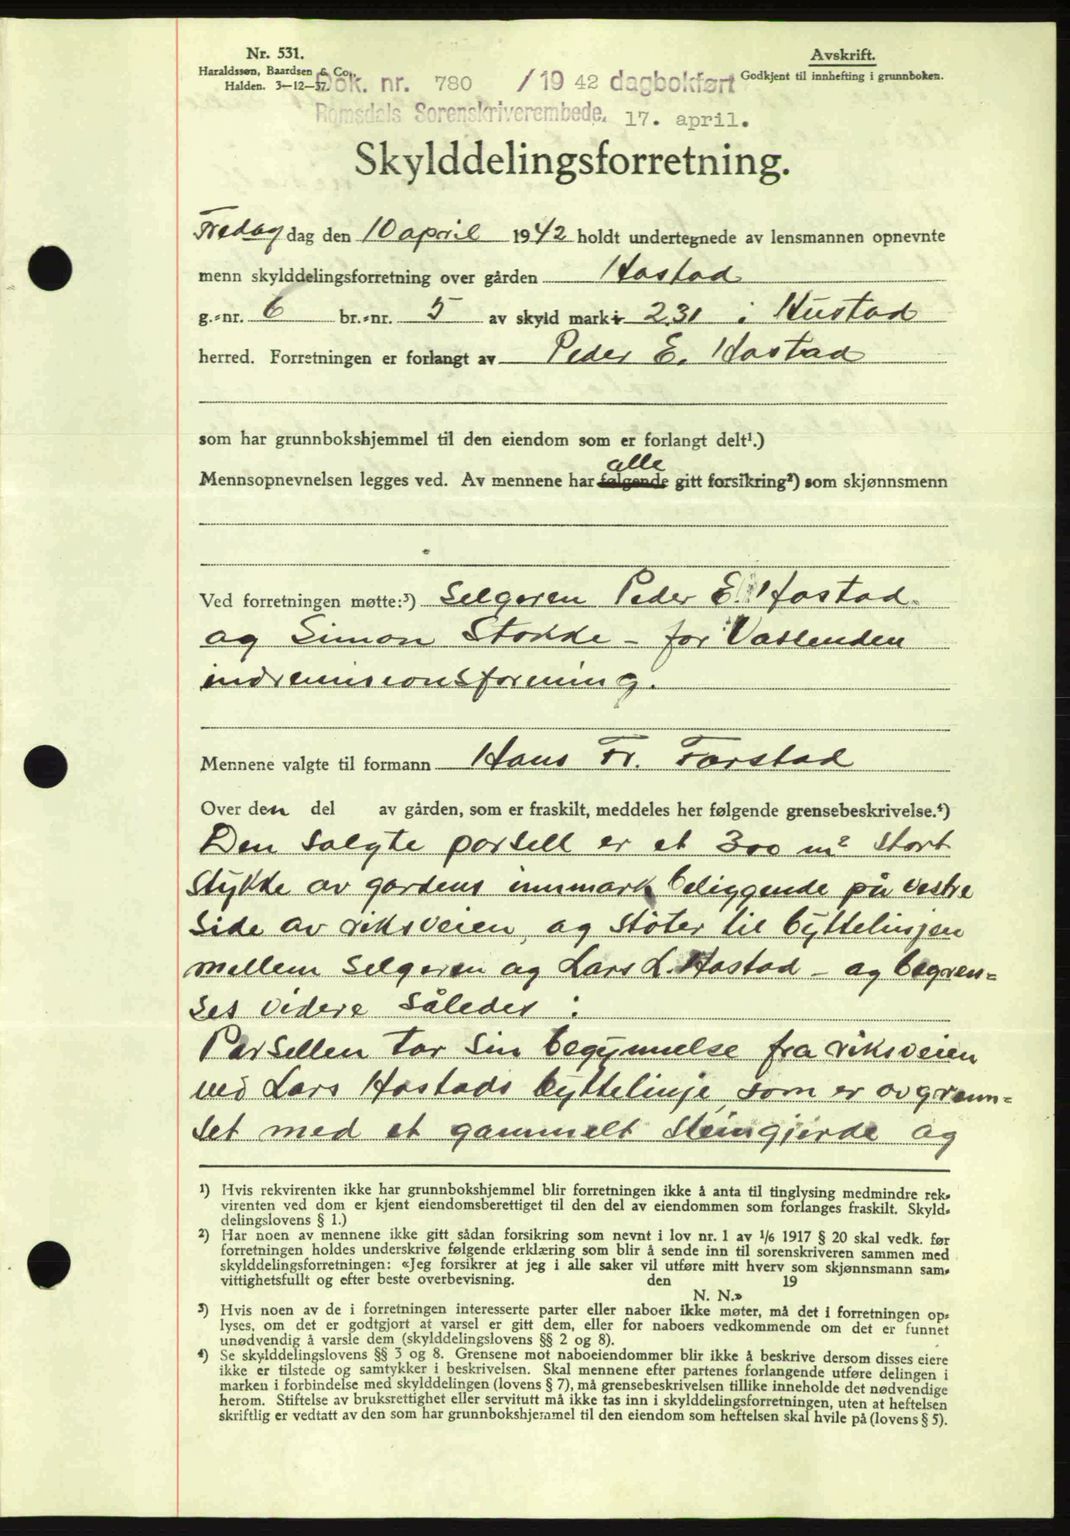 Nr. 531.
Haraldssøn, Baardsen & Co.,
Halden. 3—12—37.
Avskrift.
Godkjent til innhefting i grunnboken.
Dok. nr. 780 /19 42 dagbokført
Romsdals Sorenskriverembede. 17. april.
Skylddelingsforretning.
Fredag dag den 10 april 1942 holdt undertegnede av lensmannen opnevnte
menn skylddelingsforretning over gården Hostad
g.-nr. 6 br.-nr. 5 av skyld mark 2,31 i Hustad
herred. Forretningen er forlangt av Peder E. Hostad
som har grunnbokshjemmel til den eiendom som er forlangt delt¹.)
alle
Mennsopnevnelsen legges ved. Av mennene har følgende gitt forsikring²) som skjønnsmenn
Ved forretningen møtte:³) Selgeren Peder E. Hostad
og Simon Stokke – for Vastenden
indremisionsforening.
Mennene valgte til formann Hans Fr. Farstad
Over den del av gården, som er fraskilt, meddeles her følgende grensebeskrivelse.⁴)
Den solgte parsell er et 300 m² stort
stykke av gardens innmark beliggende på vestre
side av riksveien, og støter til byttelinjen
mellem selgeren og Lars L. Hostad – og begren=
ses videre således :
Parsellen tar sin begynnelse fra riksveien
ved Lars Hostads byttelinje, som er avgrenn=
set med et gammelt steingjerde og
¹) Hvis rekvirenten ikke har grunnbokshjemmel blir forretningen ikke å anta til tinglysing medmindre rek-
virenten ved dom er kjent eiendomsberettiget til den del av eiendommen som forlanges fraskilt. Skyld-
delingslovens § 1.)
²) Har noen av mennene ikke gitt sådan forsikring som nevnt i lov nr. 1 av ¹/₆ 1917 § 20 skal vedk. før
forretningen holdes underskrive følgende erklæring som blir å sende inn til sorenskriveren sammen med
skylddelingsforretningen: «Jeg forsikrer at jeg i alle saker vil utføre mitt hverv som skjønnsmann sam-
vittighetsfullt og efter beste overbevisning. den 19
N. N.»
³) Hvis noen av de i forretningen interesserte parter eller naboer ikke møter, må det i forretningen op-
lyses, om det er godtgjort at varsel er gitt dem, eller for naboers vedkommende om det er funnet
unødvendig å varsle dem (skylddelingslovens §§ 2 og 8).
⁴) Se skylddelingslovens §§ 3 og 8. Grensene mot naboeiendommer blir ikke å beskrive dersom disses eiere
ikke er tilstede og samtykker i beskrivelsen. Skal mennene efter partenes forlangende utføre delingen i
marken i forbindelse med skylddelingen (lovens § 7), må grensebeskrivelsen tillike inneholde det nødvendige
herom. Stiftelse av bruksrettighet eller servitutt må ikke tas inn i skylddelingsforretningen, uten at heftelsen
skriftlig er vedtatt av den som har grunnbokshjemmel til den eiendom som heftelsen skal hvile på (lovens § 5).